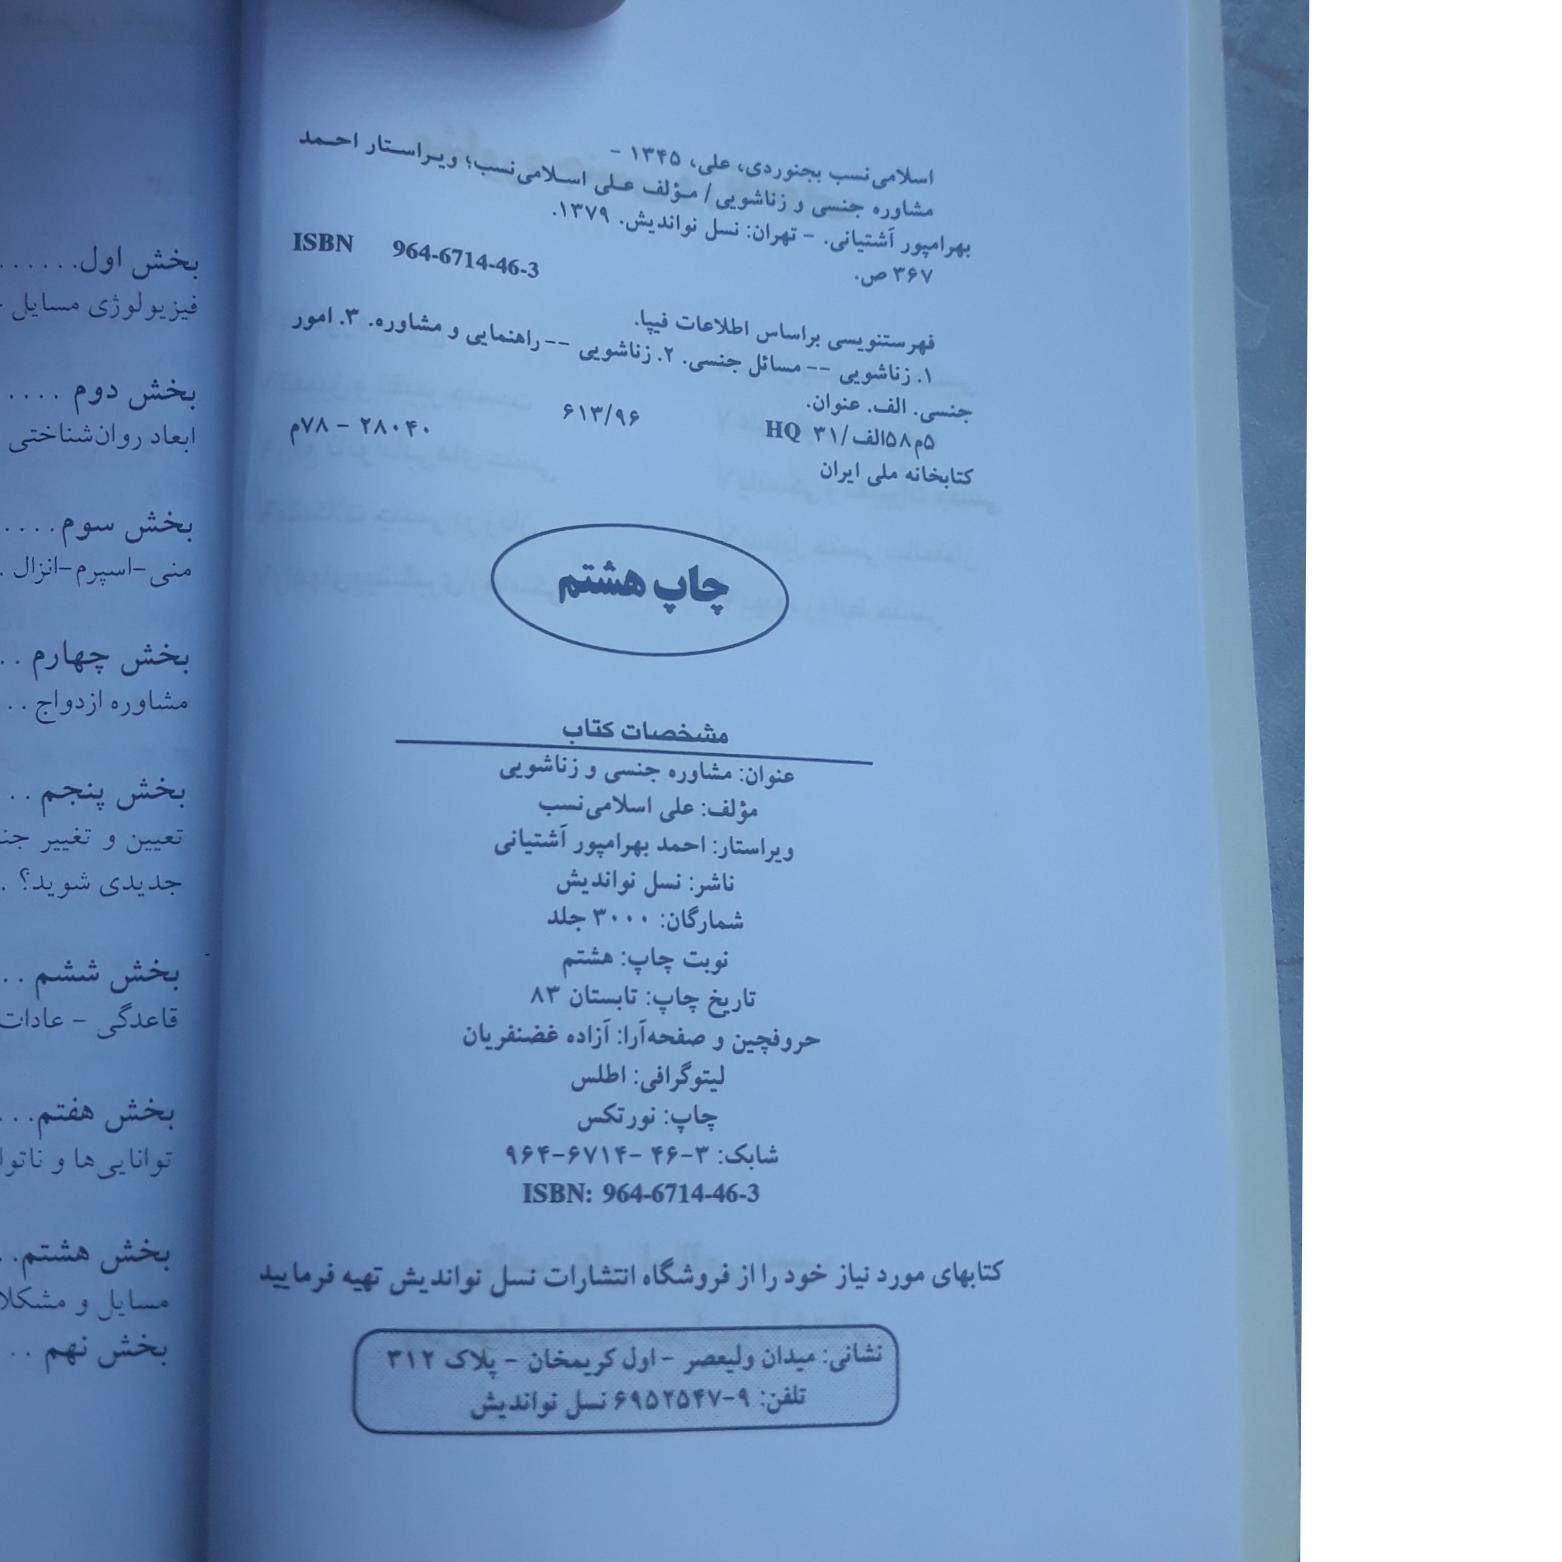 اسلامی‌نسب بجنوردی، علی، ۱۳۴۵ -
مشاوره جنسی و زناشویی / مؤلف علی اسلامی‌نسب؛ ویراستار احمد
بهرامپور آشتیانی. - تهران: نسل نواندیش. ۱۳۷۹.
۳۶۷ ص.
ISBN 964-6714-46-3
فهرستنویسی براساس اطلاعات فیپا.
۱. زناشویی -- مسائل جنسی. ۲. زناشویی -- راهنمایی و مشاوره. ۳. امور
جنسی. الف. عنوان.
۵م۵۸الف/۳۱ HQ ۶۱۳/۹۶ ۲۸۰۴۰ - ۷۸م
کتابخانه ملی ایران
چاپ هشتم
مشخصات کتاب
عنوان: مشاوره جنسی و زناشویی
مؤلف: علی اسلامی‌نسب
ویراستار: احمد بهرامپور آشتیانی
ناشر: نسل نواندیش
شمارگان: ۳۰۰۰ جلد
نوبت چاپ: هشتم
تاریخ چاپ: تابستان ۸۳
حروفچین و صفحه‌آرا: آزاده غضنفریان
لیتوگرافی: اطلس
چاپ: نورتکس
شابک: ۳-۴۶ -۶۷۱۴-۹۶۴
ISBN: 964-6714-46-3
کتابهای مورد نیاز خود را از فروشگاه انتشارات نسل نواندیش تهیه فرمایید
نشانی: میدان ولیعصر - اول کریمخان - پلاک ۳۱۲
تلفن: ۹-۶۹۵۲۵۴۷ نسل نواندیش
بخش اول.......
فیزیولوژی مسایل
بخش دوم ....
ابعاد روان‌شناختی
بخش سوم.....
منی-اسپرم-انزال .
بخش چهارم ..
مشاوره ازدواج ..
بخش پنجم ..
تعیین و تغییر
جدیدی شوید؟ .
بخش ششم ..
قاعدگی - عادات
بخش هفتم...
توانایی‌ها و
بخش هشتم..
مسایل و
بخش نهم ..